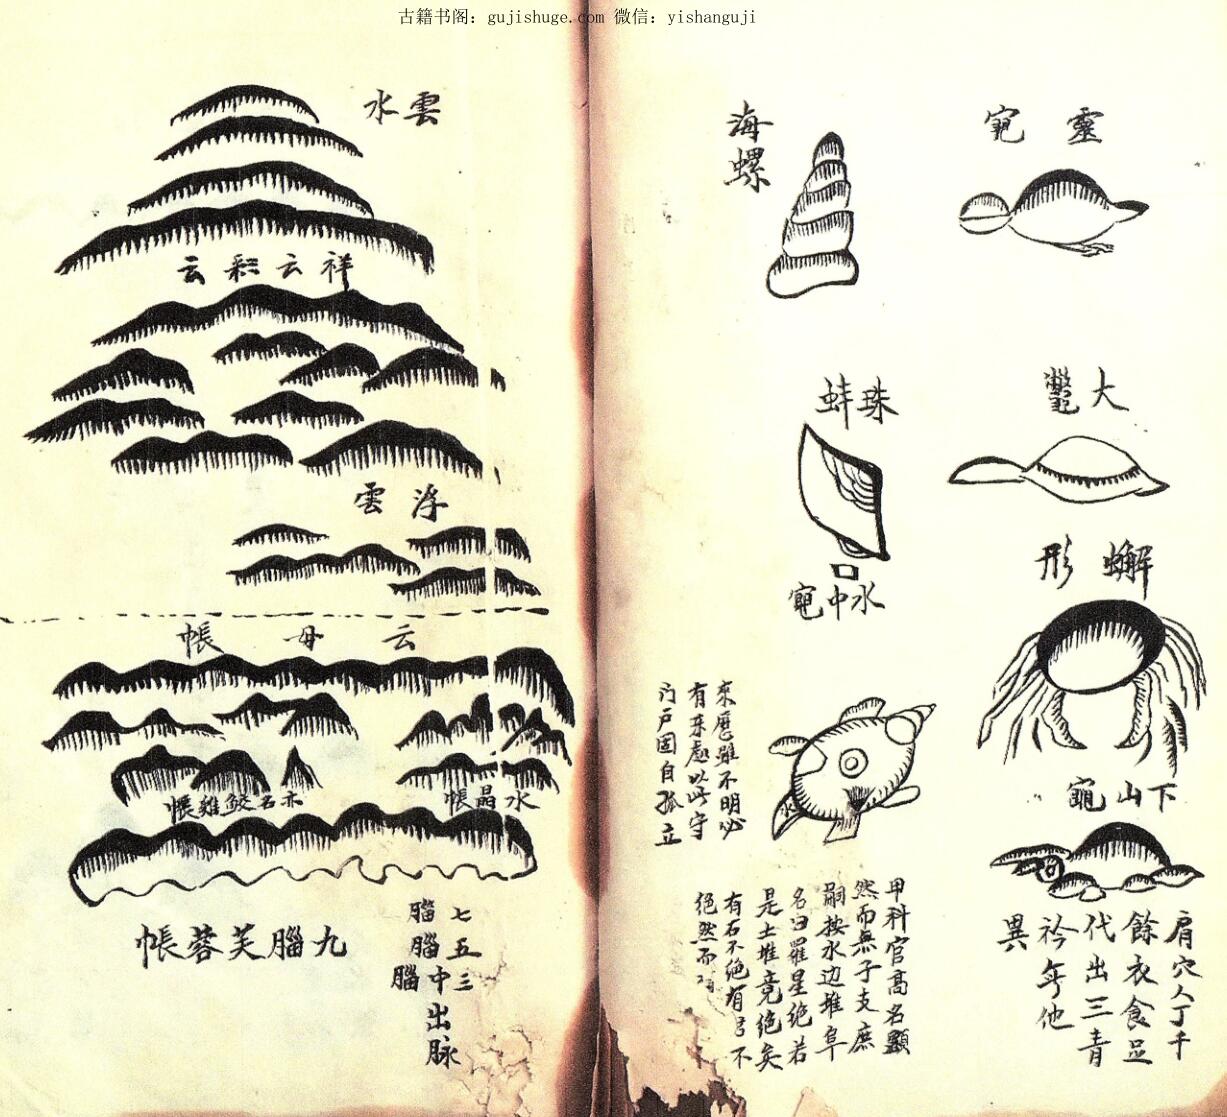 古籍书阁：gujishuge.com 微信：yishanguji
靈龟
大鼈
蠏形
下山龜
肩穴人丁千
餘衣食足
代出三青
衿年他
異
海螺
珠蚌
水中龟
甲科官高名顯
然而無子支庶
嗣按水边堆阜
名曰羅星绝若
是土堆竟绝矣
有石不绝有 不
绝然而
來歷雖不明必
有来處以此守
门户固自孤立
水
雲水
祥云彩云
浮雲
云母帳
水晶帳
赤石鮫雞帳
七腦
五腦
三中腦
出脉
九腦芙蓉帳